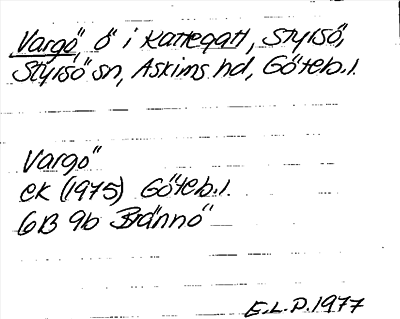 Vargö, ö i Kattegatt, Styrsö,
Styrsö sn, Askims hd, Göteb.l.
Vargö
ek (1975) Göteb.l.
6B 9b Brännö
E.L.P.1977